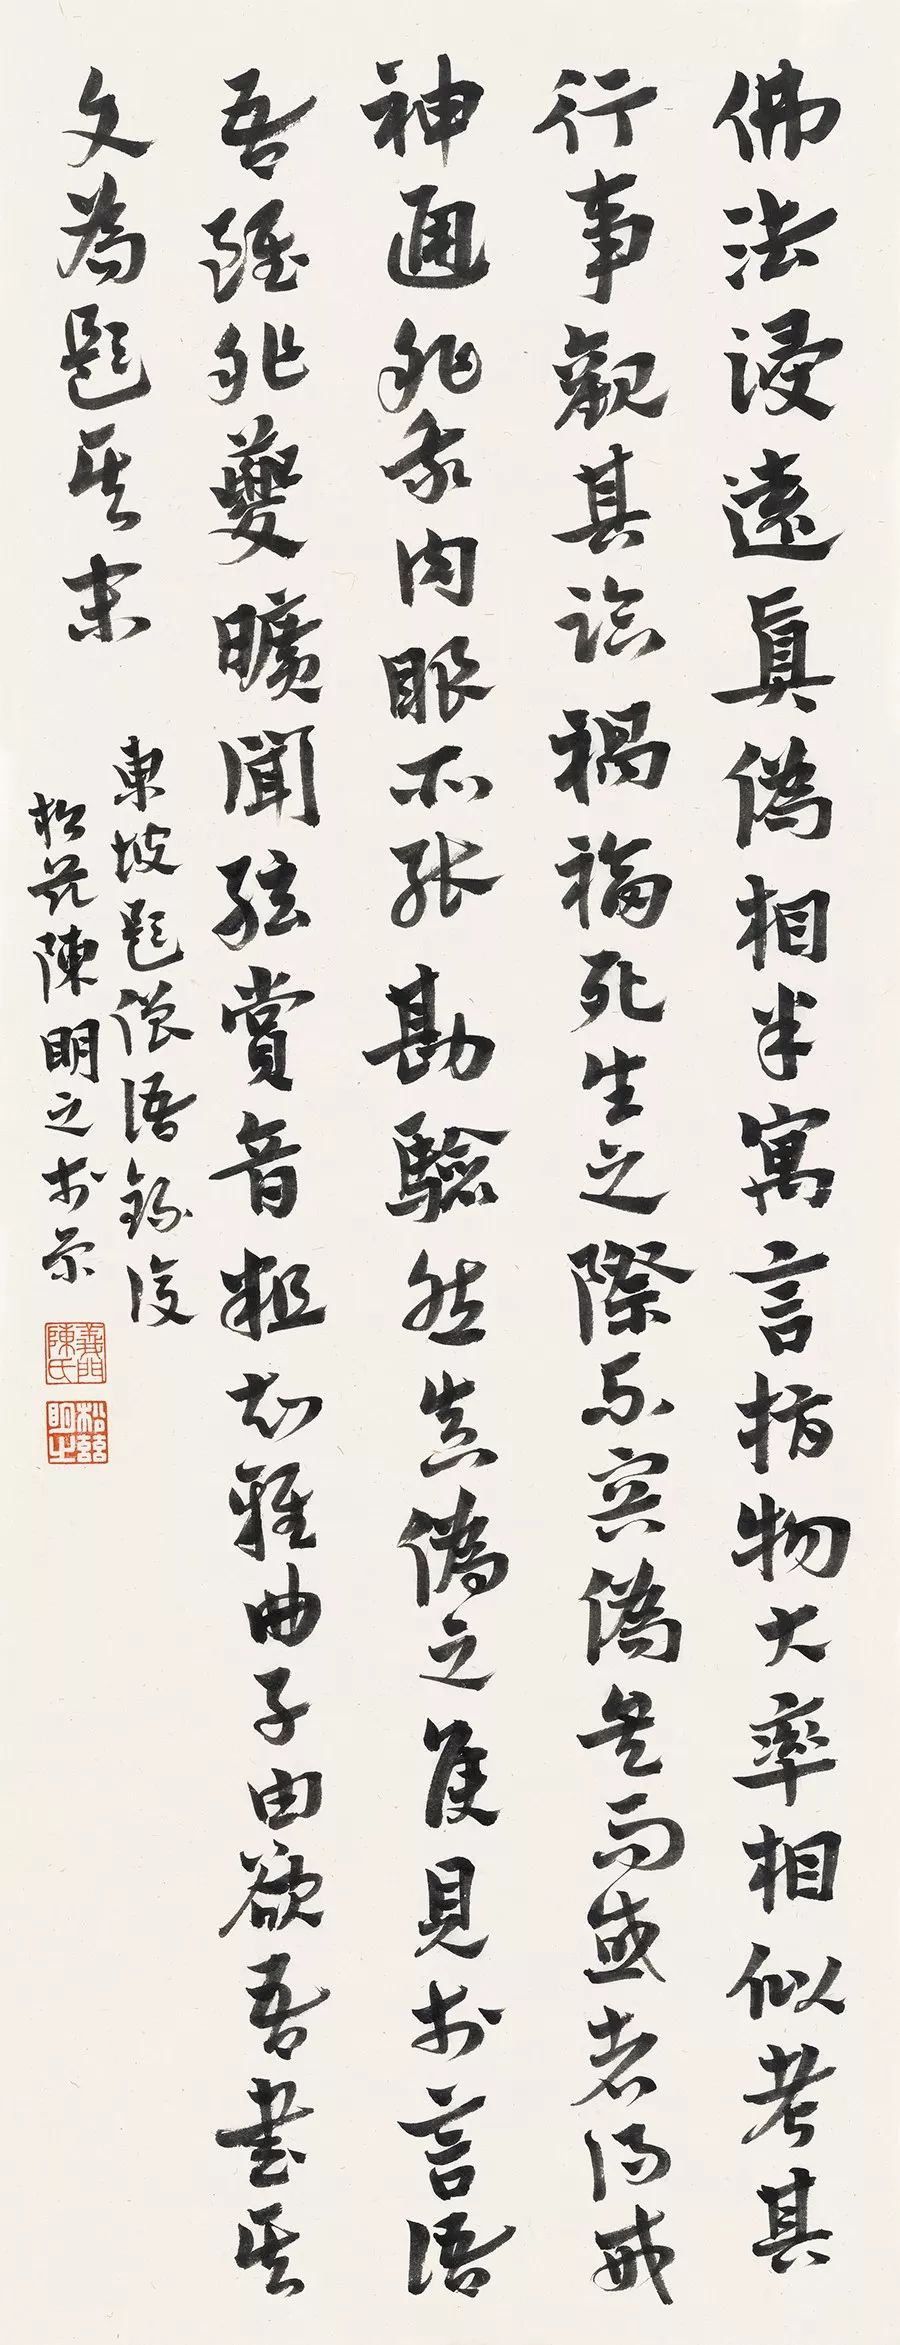 佛法浸遠真偽相半寓言指物大率相似考其
行事觀其臨禍福死生之際不容偽矣而或者得戒
神通非我肉眼所能勘驗然真偽之候見於言語
吾雖非夔曠聞弦賞音粗知雅曲子由欲吾書其
文為題其末
東坡題僧語錄後
松陳明之於京
義門陳氏